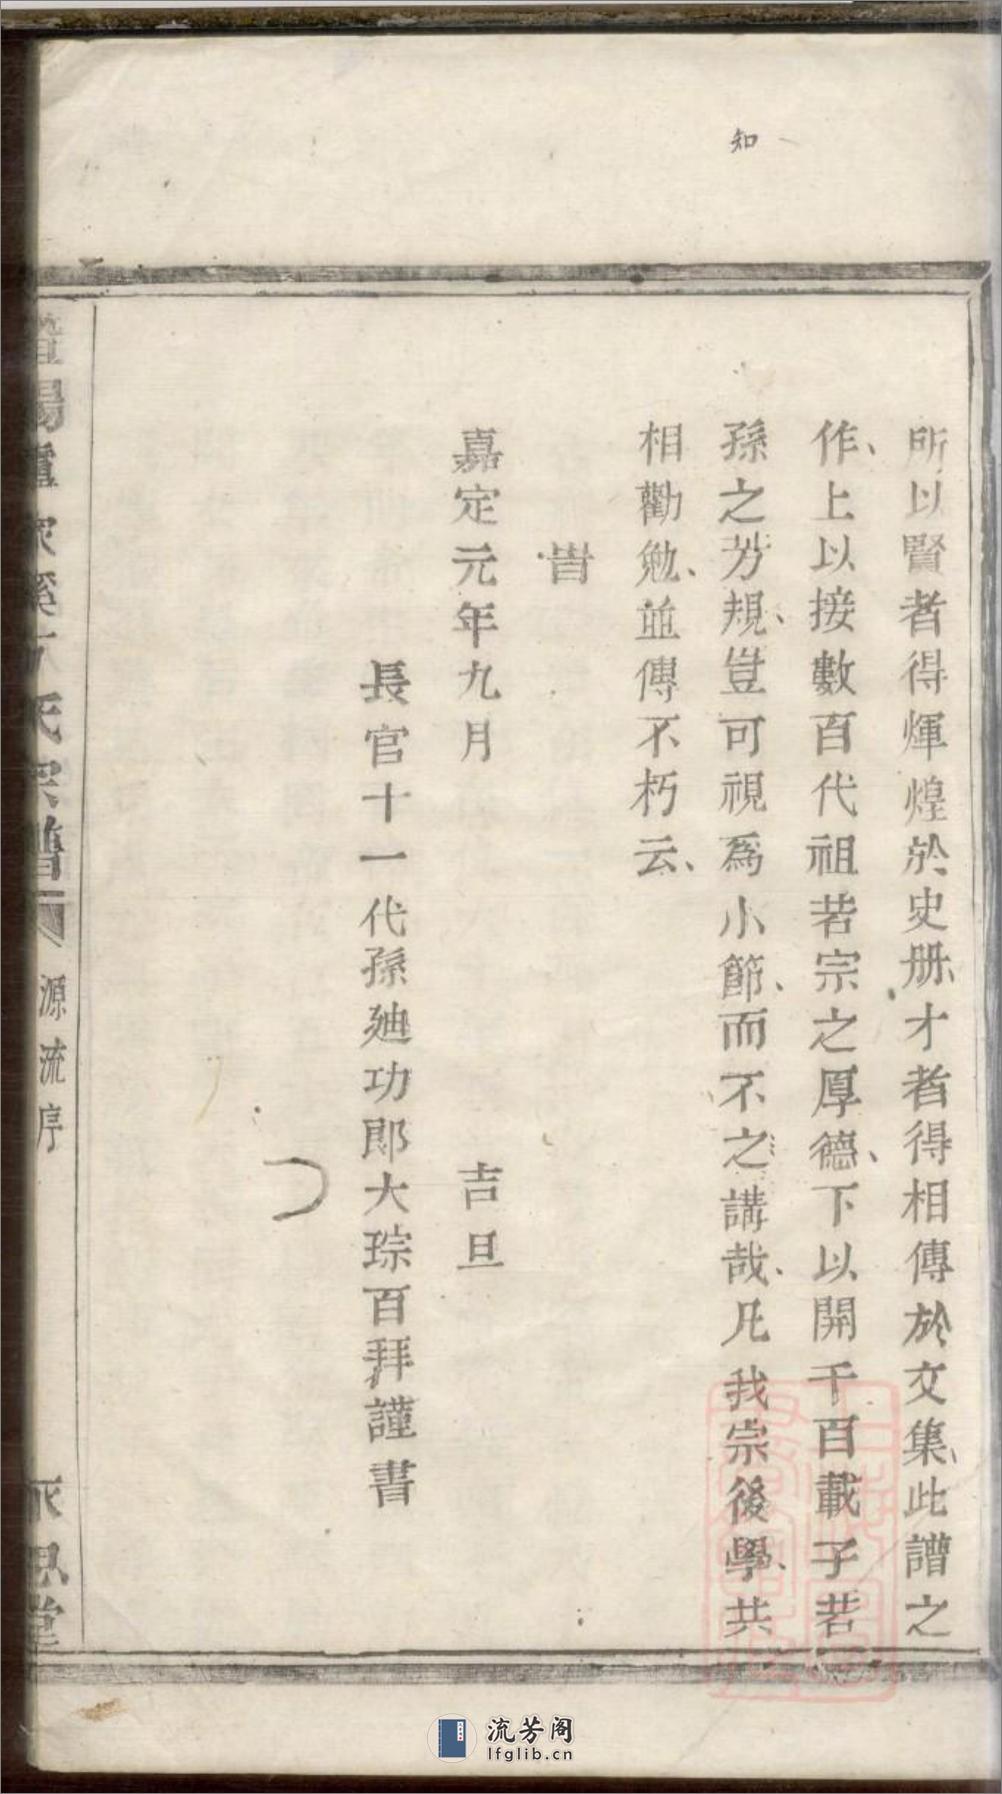 知
所以賢者得煇煌於史册、才者得相傳於文集、此譜之
作、上以接數百代祖若宗之厚德、下以開千百載子若
孫之芳規、豈可視為小節、而不之講哉、凡我宗後學、共
相勸勉、並傳不朽云、
旹
嘉定元年九月 吉旦
長官十一代孫廸功郎大琮百拜謹書
氏宗譜 源流序 堂
流芳阁
lfglib.cn